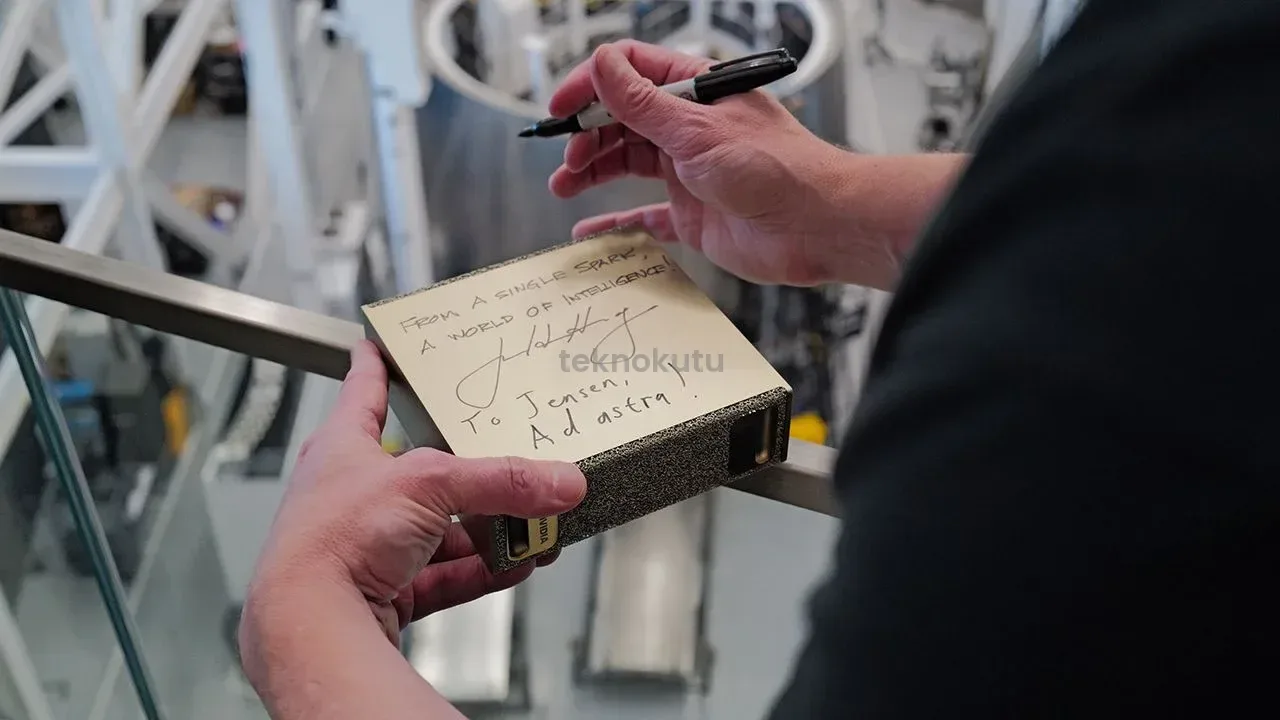 FROM A SINGLE SPARK,
A WORLD OF INTELLIGENCE!
teknokutu
To Jensen,
Ad astra!
NVIDIA